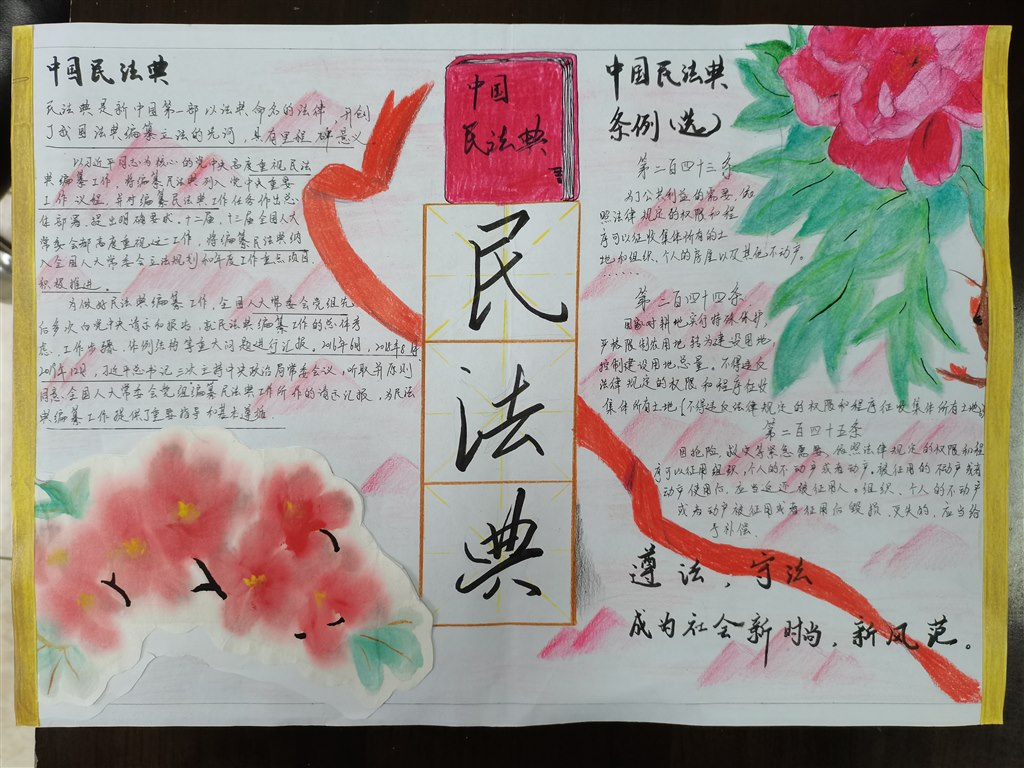 中国民法典
民法典是新中国第一部以法典命名的法律，开创
了我国法典编纂立法的先河，具有里程碑意义
以习近平同志为核心的党中央高度重视民法
典编纂工作，将编纂民法典列入党中央重要
工作议程，并对编纂民法典工作任务作出总
体部署、提出明确要求。十二届、十三届全国人大
常委会都高度重视这一工作，将编纂民法典纳
入全国人大常委会立法规划和年度工作重点项目，
积极推进。
为做好民法典编纂工作，全国人大常委会党组先
后多次向党中央请示和报告，就民法典编纂工作的总体考
虑、工作步骤、体例结构等重大问题进行汇报。2016年6月，2018年8月，
2019年12月，习近平总书记三次主持中央政治局常委会会议，听取并原则
同意全国人大常委会党组编纂民法典工作所作的请示汇报，为民法
典编纂工作提供了重要指导和基本遵循
中国
民法典
民
法
典
中国民法典
条例（选）
第二百四十三条
为了公共利益的需要，依
照法律规定的权限和程
序可以征收集体所有的土
地和组织、个人的房屋以及其他不动产。
……
第二百四十四条
国家对耕地实行特殊保护，
严格限制农用地转为建设用地，
控制建设用地总量。不得违反
法律规定的权限和程序征收
集体所有土地（不得违反法律规定的权限和程序征收集体所有土地）
第二百四十五条
因抢险、救灾等紧急需要，依照法律规定的权限和程
序可以征用组织、个人的不动产或者动产。被征用的不动产或者
动产使用后，应当返还被征用人。组织、个人的不动产
或者动产被征用或者征用后毁损、灭失的，应当给
予补偿.
遵法，守法
成为社会新时尚，新风范。